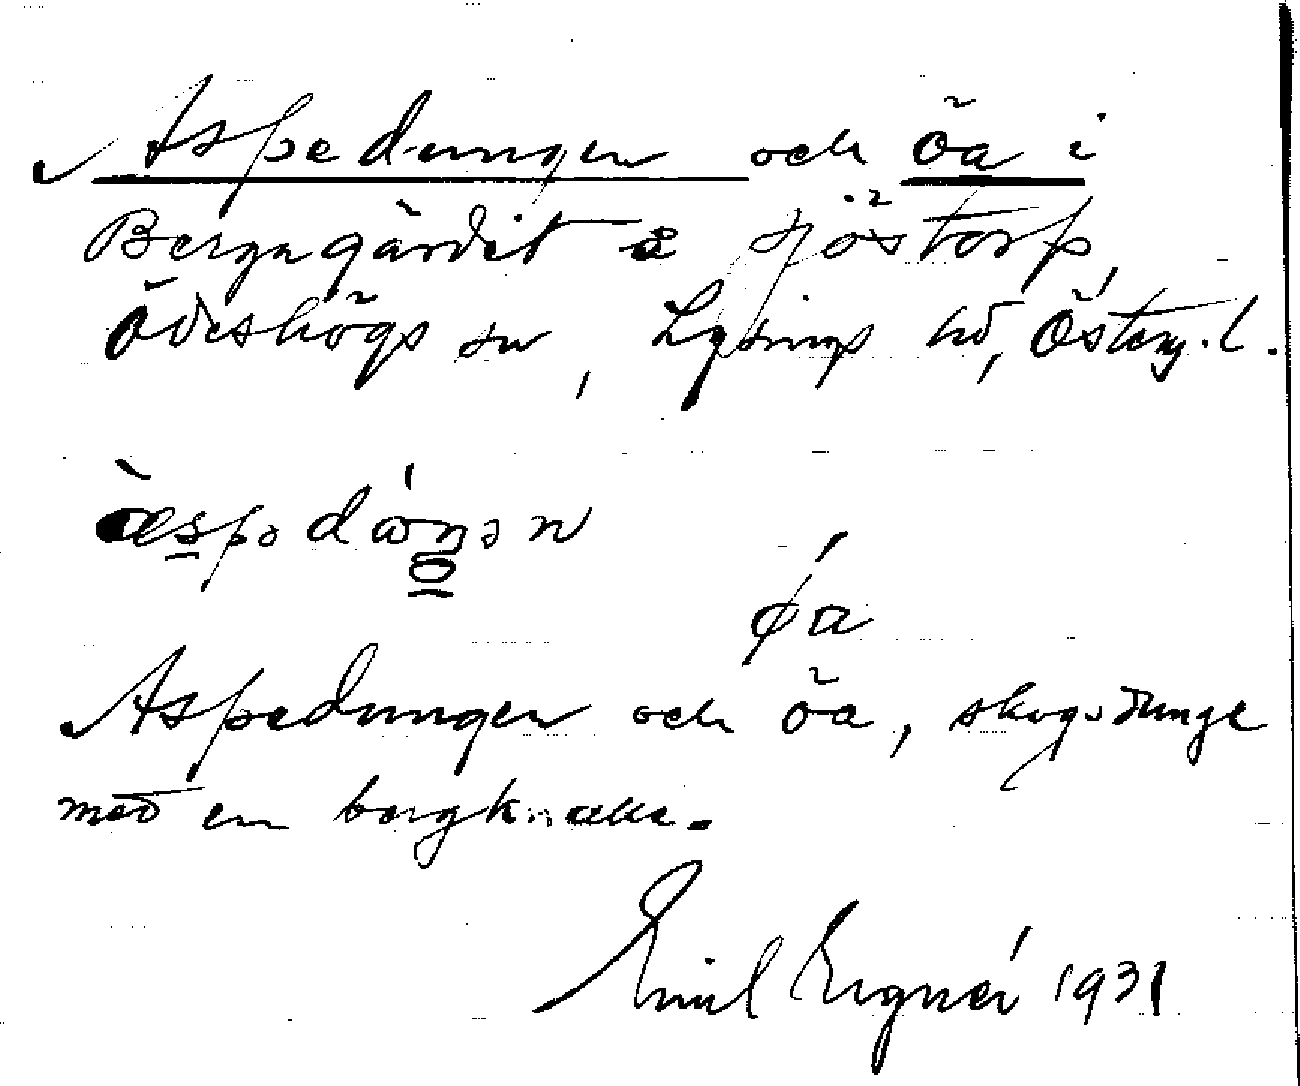 Aspedungen och öa i
Bergagärdet å Sjöstorp,
Ödeshögs sn, Lysings hd, Österg. l.
æspədωŋən
øa
Aspedungen och öa, skogsdunge
med en bergknalle.
Emil Ergnér 1931